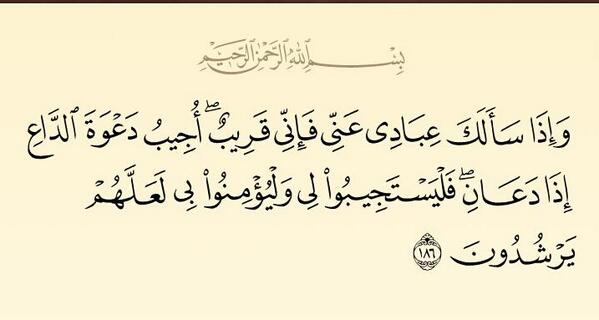 بِسْمِ ٱللَّهِ ٱلرَّحْمَٰنِ ٱلرَّحِيمِ
وَإِذَا سَأَلَكَ عِبَادِى عَنِّى فَإِنِّى قَرِيبٌ ۖ أُجِيبُ دَعْوَةَ ٱلدَّاعِ
إِذَا دَعَانِ ۖ فَلْيَسْتَجِيبُوا۟ لِى وَلْيُؤْمِنُوا۟ بِى لَعَلَّهُمْ
يَرْشُدُونَ ١٨٦